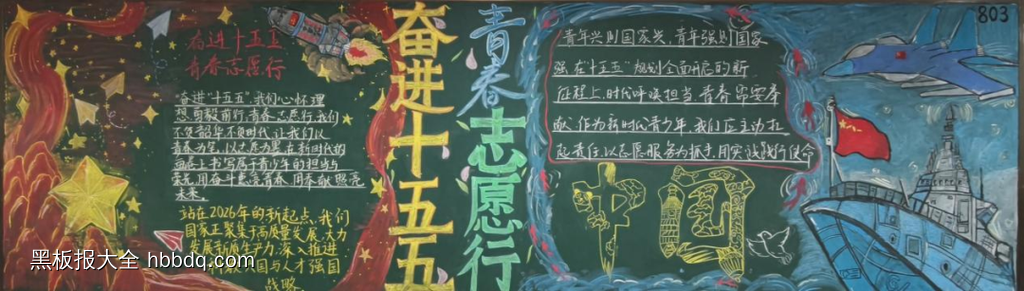 803
奋进十五五
青春志愿行
奋进十五五
青春志愿行
奋进"十五五",我们心怀理
想,勇毅前行,青春志愿行,我们
不负韶华不负时代,让我们以
青春为笔,以志愿为墨,在新时代的
画卷上书写属于青少年的担当与
荣光,用奋斗青春,用奉献照亮
未来。
站在2026年的新起点,我们
国家正聚集于高质量发展,大力
发展新质生产力,深入推进
国与人才强国
战略
青年兴则国家兴,青年强则国家
强,在"十五五"规划全面开启的新
征程上,时代呼唤担当,青春需要奉
献,作为新时代青少年,我们应主动扛
起责任,以志愿服务为抓手,用实践践行使命
中国
黑板报大全 hbbdq.com